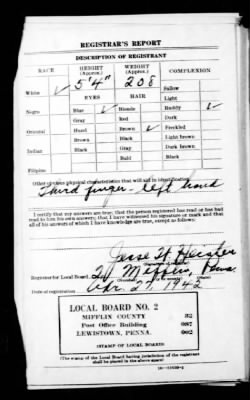 REGISTRAR'S REPORT
DESCRIPTION OF REGISTRANT
RACE HEIGHT (Approx.) WEIGHT (Approx.) COMPLEXION
White ✓ 5'4" 208 Sallow
EYES HAIR Light
Negro Blue ✓ Blonde Ruddy ✓
Gray Red Dark
Oriental Hazel Brown ✓ Freckled
Brown Black Light brown
Indian Black Gray Dark brown
Bald Black
Filipino
Other obvious physical characteristics that will aid in identification
Third finger - left hand
I certify that my answers are true; that the person registered has read or has had
read to him his own answers; that I have witnessed his signature or mark and that
all of his answers of which I have knowledge are true, except as follows:
Jesse
Registrar for Local Board 2 Mifflin Penna.
Date of registration Apr. 27, 1942
LOCAL BOARD NO. 2
MIFFLIN COUNTY 32
Post Office Building 087
LEWISTOWN, PENNA. 002
(STAMP OF LOCAL BOARD)
(The stamp of the Local Board having jurisdiction of the registrant
shall be placed in the above space)